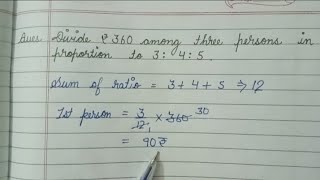 Ques Divide ₹ 360 among three persons in
proportion to 3:4:5.
Sum of ratio = 3+4+5 ⇒ 12
Ist person = 3/12 1 × 360 30
= 90₹